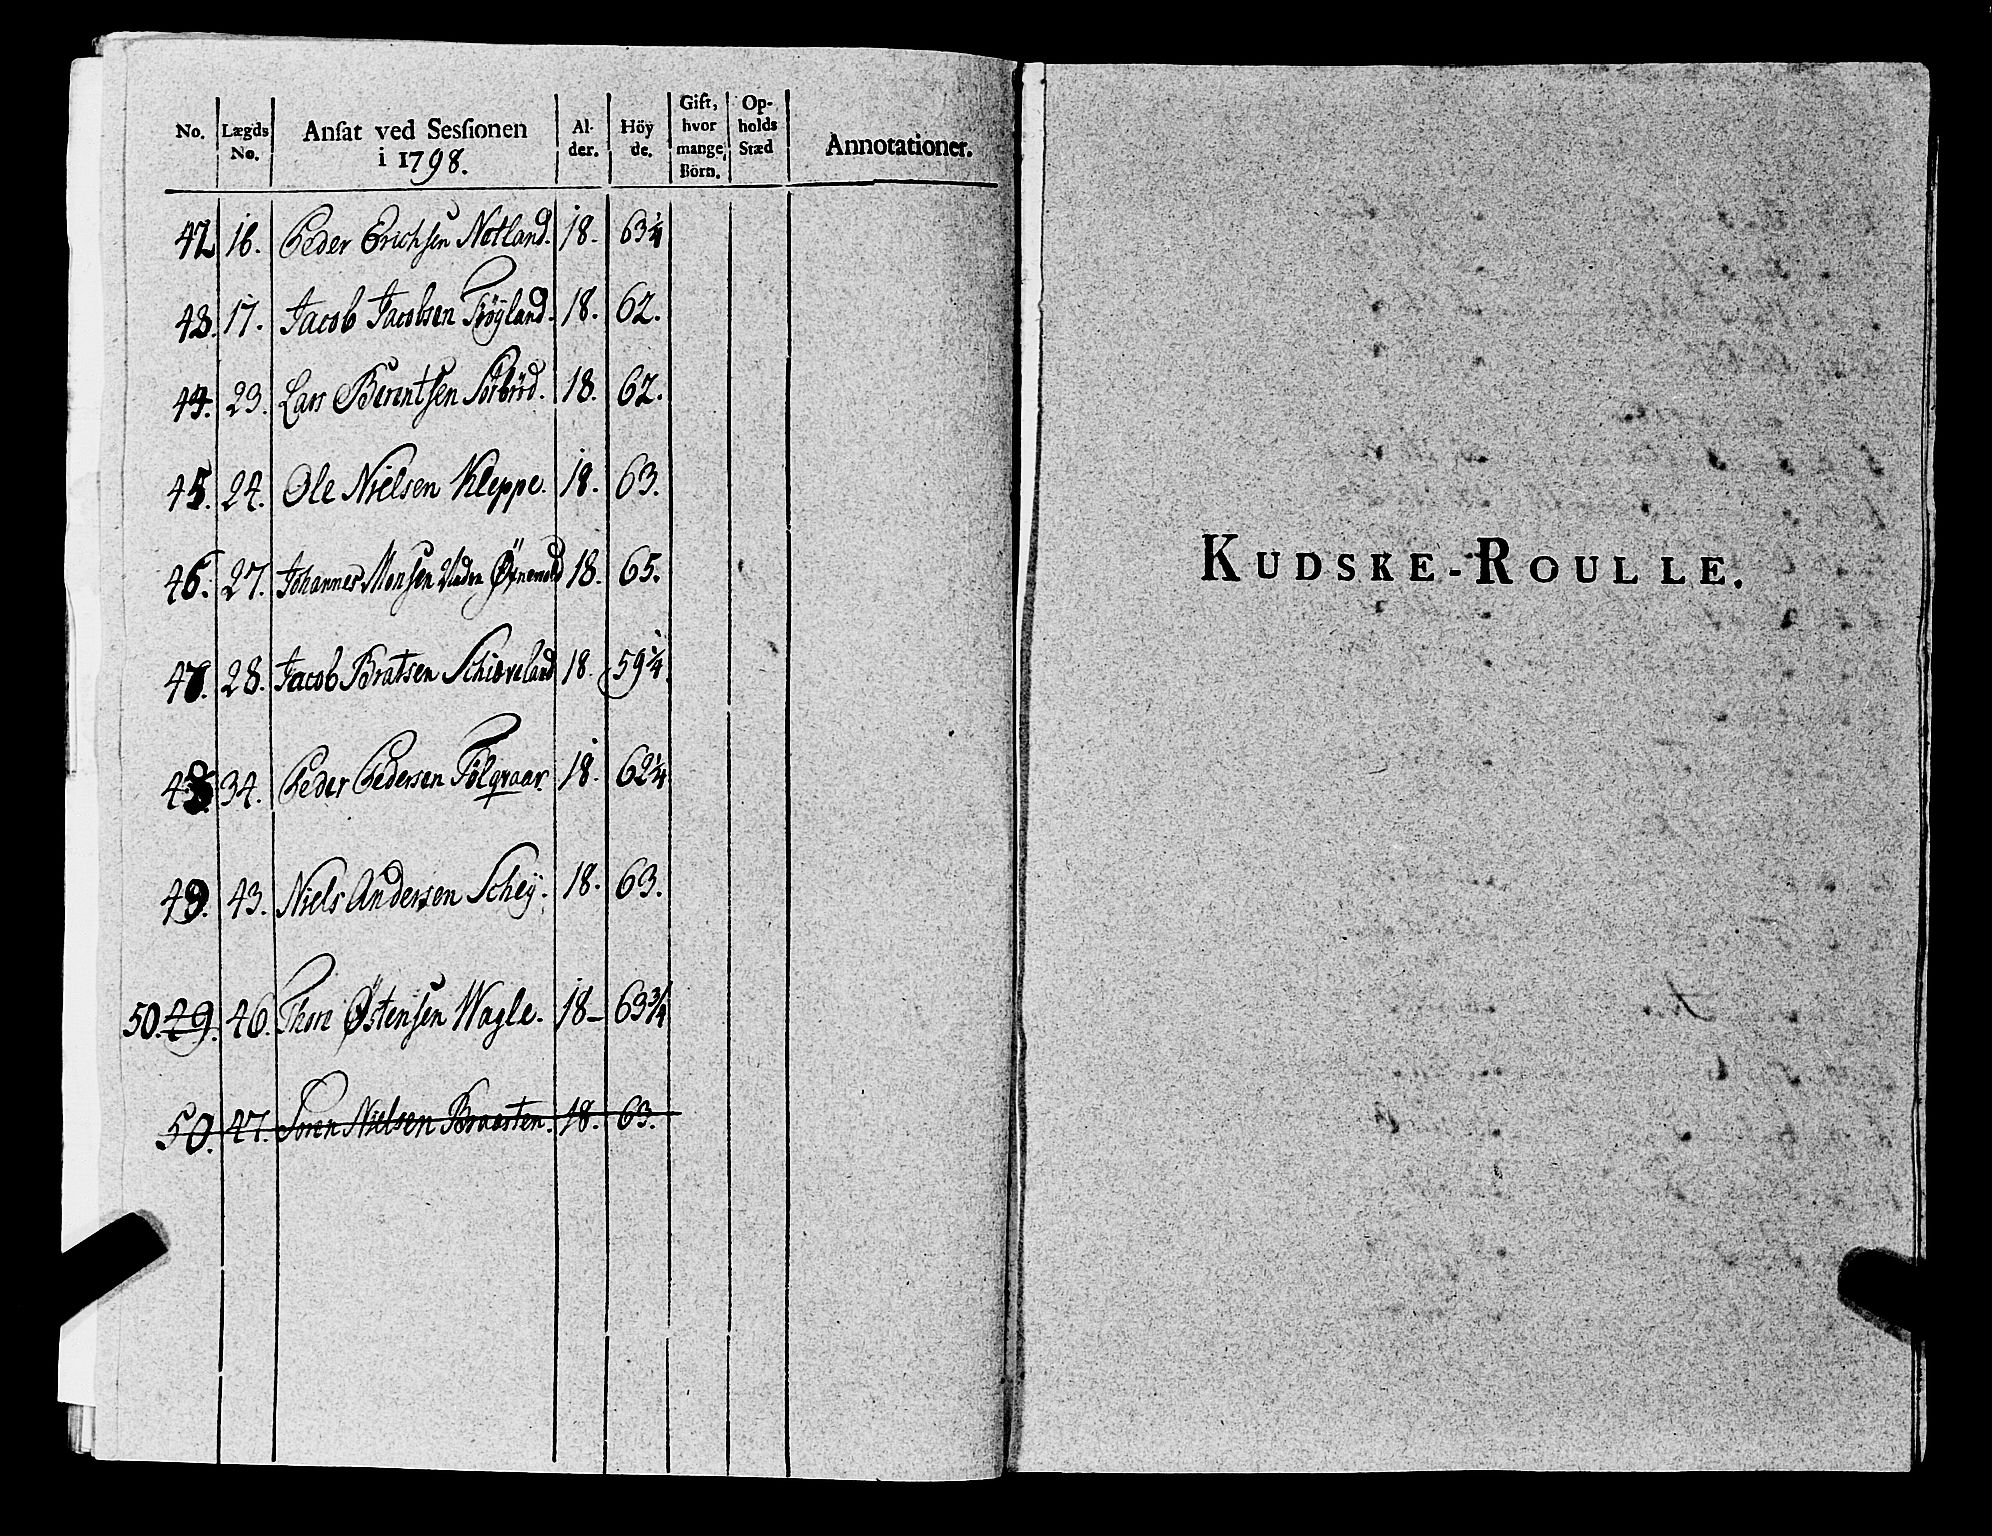 No. Lægds No. Anſat ved Sesſionen i 1798. Al- der. Höy de. Gift, hvor mange Börn. Op- holds Stæd Annotationer.
42 16. Peder Erichsen Notland. 18. 63 1/4
43. 17. Jacob Jacobsen Frøÿland. 18. 62.
44. 23. Lars Berentsen Sørbröd. 18. 62.
45. 24. Ole Nielsen Kleppe. 18. 63.
46. 27. Johannes Monsen 18. 65.
47. 28. Jacob Bratsen Schiæveland 18. 59 1/4
48 34. Peder Pedersen 18. 62 1/4
49. 43. Niels Andersen Scheÿ. 18. 63.
50. 49. 46. Thore Østensen Wagle. 18- 63 3/4
50. 47. Søren Nielsen Braasten. 18. 63.
KUDSKE-ROULLE.